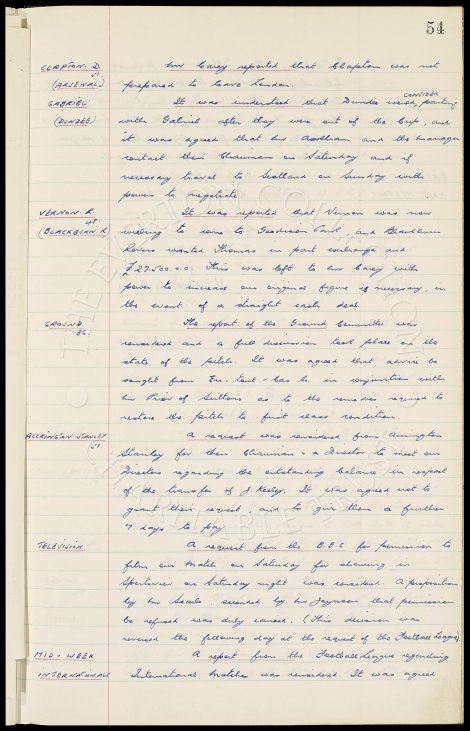 54
CLAPTON. D. Mr Carey reported that Clapton was not
(ARSENAL) prepared to leave London.
GABRIEL It was understood that Dundee would CONSIDER parting
(DUNDEE) with Gabriel after they were out of the Cup, and
it was agreed that Mr and the manager
contact their Chairman on Saturday and if
necessary travel to Scotland on Sunday with
powers to negotiate.
VERNON R. It was reported that Vernon was now
(BLACKBURN R) willing to come to Goodison Park, and Blackburn
Rovers wanted Thomas in part exchange and
£27.500.0.0. This was left to Mr Carey with
power to increase our original figure if necessary, in
the event of a straight cash deal.
GROUND The report of the Ground Committee was
86. considered and a full discussion took place on the
state of the pitch. It was agreed that advice be
sought from En. tout-Cas Co. in conjunction with
Mr Prior of Suttons as to the remedies required to
restore the pitch to first class condition.
ACCRINGTON STANLEY A request was considered from Accrington
Stanley for their Chairman & a Director to meet our
Directors regarding the outstanding balance in respect
of the transfer of J. Keeley. It was agreed not to
grant their request, and to give them a further
7 days to pay
TELEVISION A request from the B.B.C for permission to
film our match on Saturday for showing in
Sportsview on Saturday night was considered. A proposition
by Mr Searle, seconded by Mr that permission
be refused was duly carried. (This decision was
reversed the following day at the request of the Football League)
MID-WEEK A report from the Football League regarding
INTERNATIONALS International matches was considered It was agreed